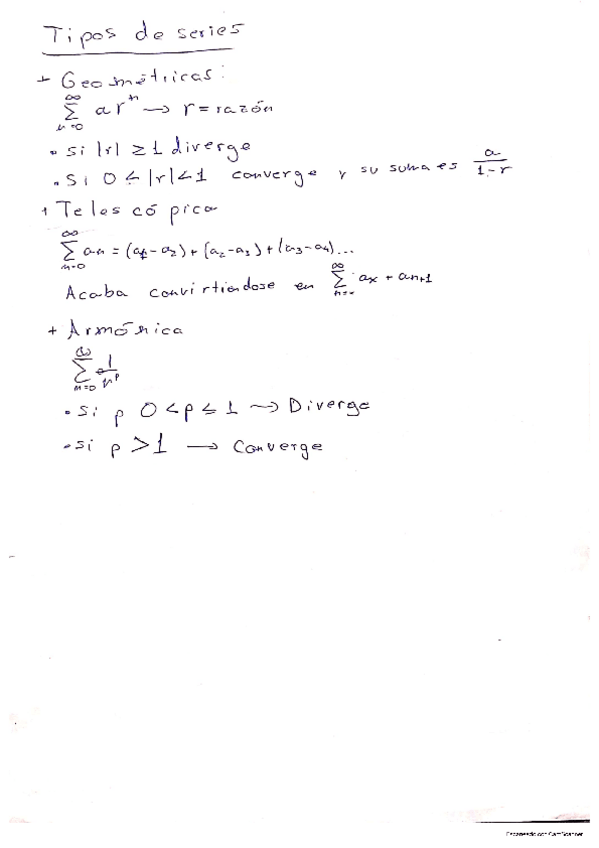 Tipos de series
+ Geométricas:
∞
∑ a rⁿ → r = razón
n=0
• si |r| ≥ 1 diverge
• Si 0 < |r| < 1 converge y su suma es a/(1-r)
+ Telescópica
∞
∑ an = (a1-a2) + (a2-a3) + (a3-a4)...
n=0
Acaba convirtiendose en ∑ ax + an+1
+ Armónica
∞
∑ 1/nᵖ
n=0
• Si p 0 < p ≤ 1 → Diverge
• si p > 1 → Converge
Escaneado con CamScanner